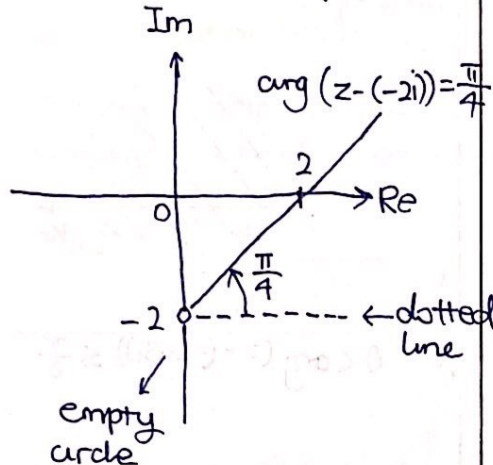 Im
arg (z-(-2i)) = π/4
2
0
Re
π/4
-2
← dotted
line
empty
circle